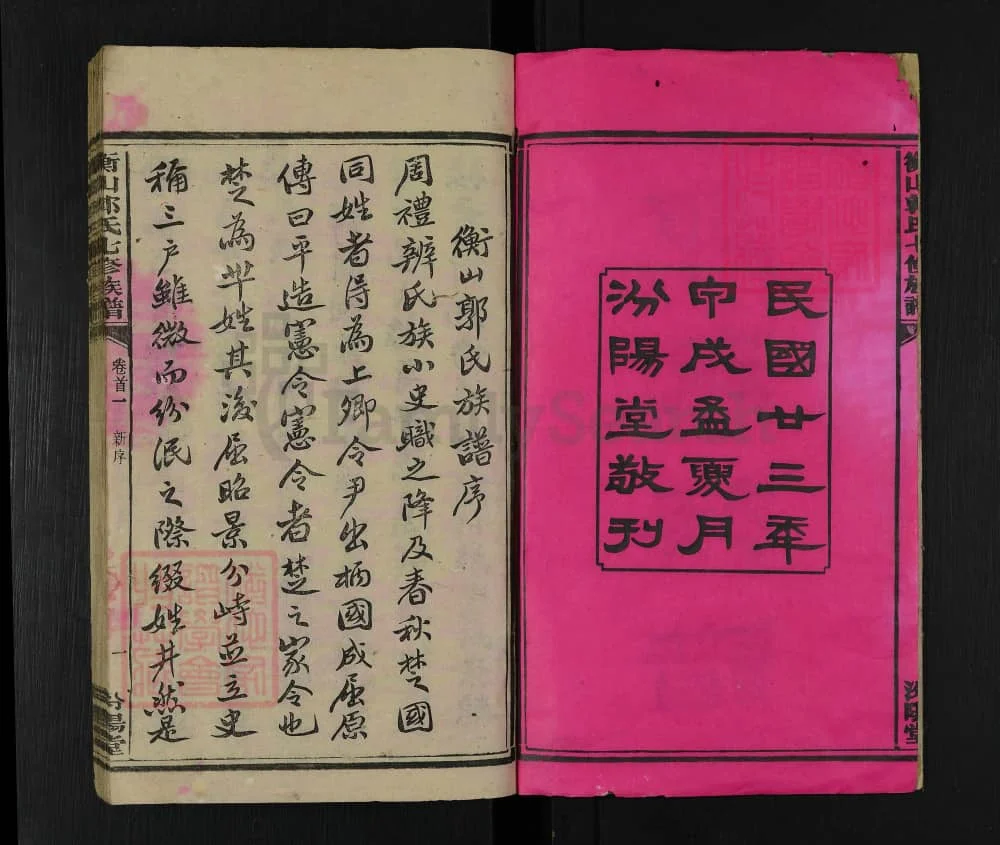 民國廿三年
甲戌孟夏月
汾陽堂敬刊
衡山郭氏七修族譜
汾陽堂
衡山郭氏族譜序
周禮辨氏族小史職之降及春秋楚國
同姓者得為上卿令尹出柄國成屈原
傳曰平造憲令憲令者楚之家令也
楚為羋姓其後屈昭景分峙並立史
稱三戶雖微而紛泯之際綴姓井然是
衡山郭氏七修族譜
卷首一
新序
一
汾陽堂